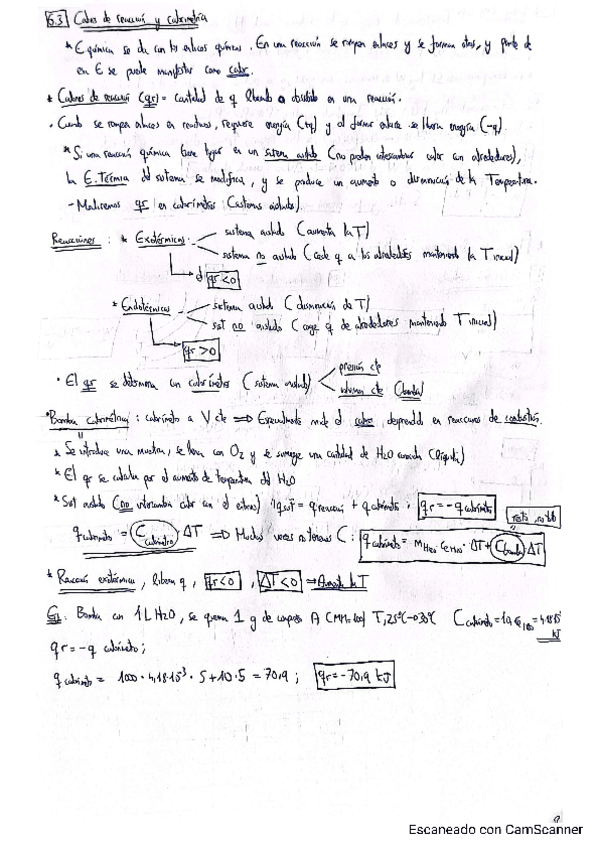 6.3 Calores de reacción y calorimetría
* E química se da con los enlaces químicos. En una reacción se rompen enlaces y se forman otros, y parte de
esa E se puede manifestar como calor.
* Calores de reacción (qr) = cantidad de q liberado o absorbido en una reacción.
· Cuando se rompen enlaces en reactivos, requiere energía (+q) y al formar enlaces se libera energía (-q).
* Si una reacción química tiene lugar en un sistema aislado (no pueden intercambiar calor con alrededores),
la E. Térmica del sistema se modifica, y se produce un aumento o disminución de la Temperatura.
- Mediremos qr en calorímetros (sistemas aislados).
Reacciones: * Exotérmicas sistema aislado (aumenta la T)
sistema no aislado (cede q a los alrededores manteniendo la T inicial)
qr < 0
* Endotérmicas sistema aislado (disminución de T)
sist no aislado (coge q de alrededores manteniendo T inicial)
qr > 0
· El qr se determina con calorímetros (sistema aislado) presión cte
volumen cte (bomba)
* Bomba calorimétrica: calorímetro a V cte ⇒ Especialmente mide el calor desprendido en reacciones de combustión.
* Se introduce una muestra, se llena con O2 y se sumerge una cantidad de H2O conocida (líquida)
* El qr se calcula por el aumento de temperatura del H2O
* Sist aislado (no intercambia calor con el entorno) qsist = q reacción + q calorímetro; qr = -q calorímetro
q calorímetro = C calorímetro · ΔT ⇒ Muchas veces no tenemos C: q calorímetro = mH2O · ceH2O · ΔT + C bomba ΔT
* Reacción exotérmica, libera q, qr<0, ΔT<0 ⇒ Aumenta la T
Ej: Bomba con 1 L H2O, se quema 1 g de compuesto A (MM=100) T, 25°C → 30°C
qr = -q calorímetro;
q calorímetro = 1000 · 4,18·10⁻³ · 5 + 10 · 5 = 70,9; qr = -70,9 kJ
Escaneado con CamScanner